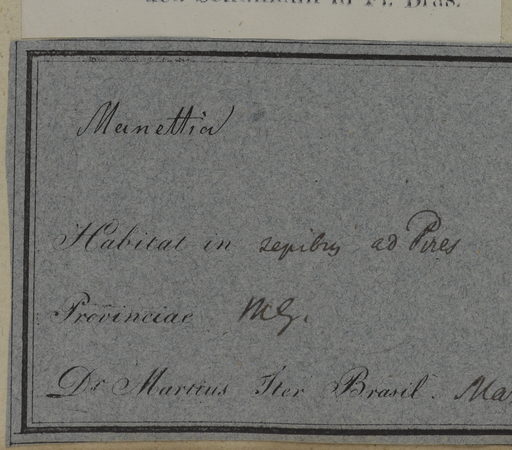 Fl. Bras.
Manettia
Habitat in sepibus ad Pires
Provinciae MG.
Dr Martius Iter Brasil. Ma